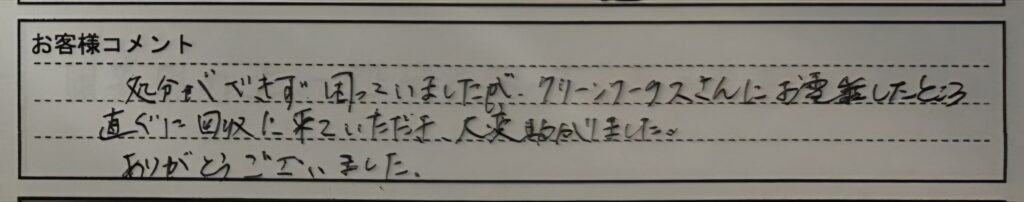 お客様コメント
処分ができず困っていましたが、クリーンワークスさんにお電話したところ
直ぐに回収に来ていただき、大変助かりました。
ありがとうございました。